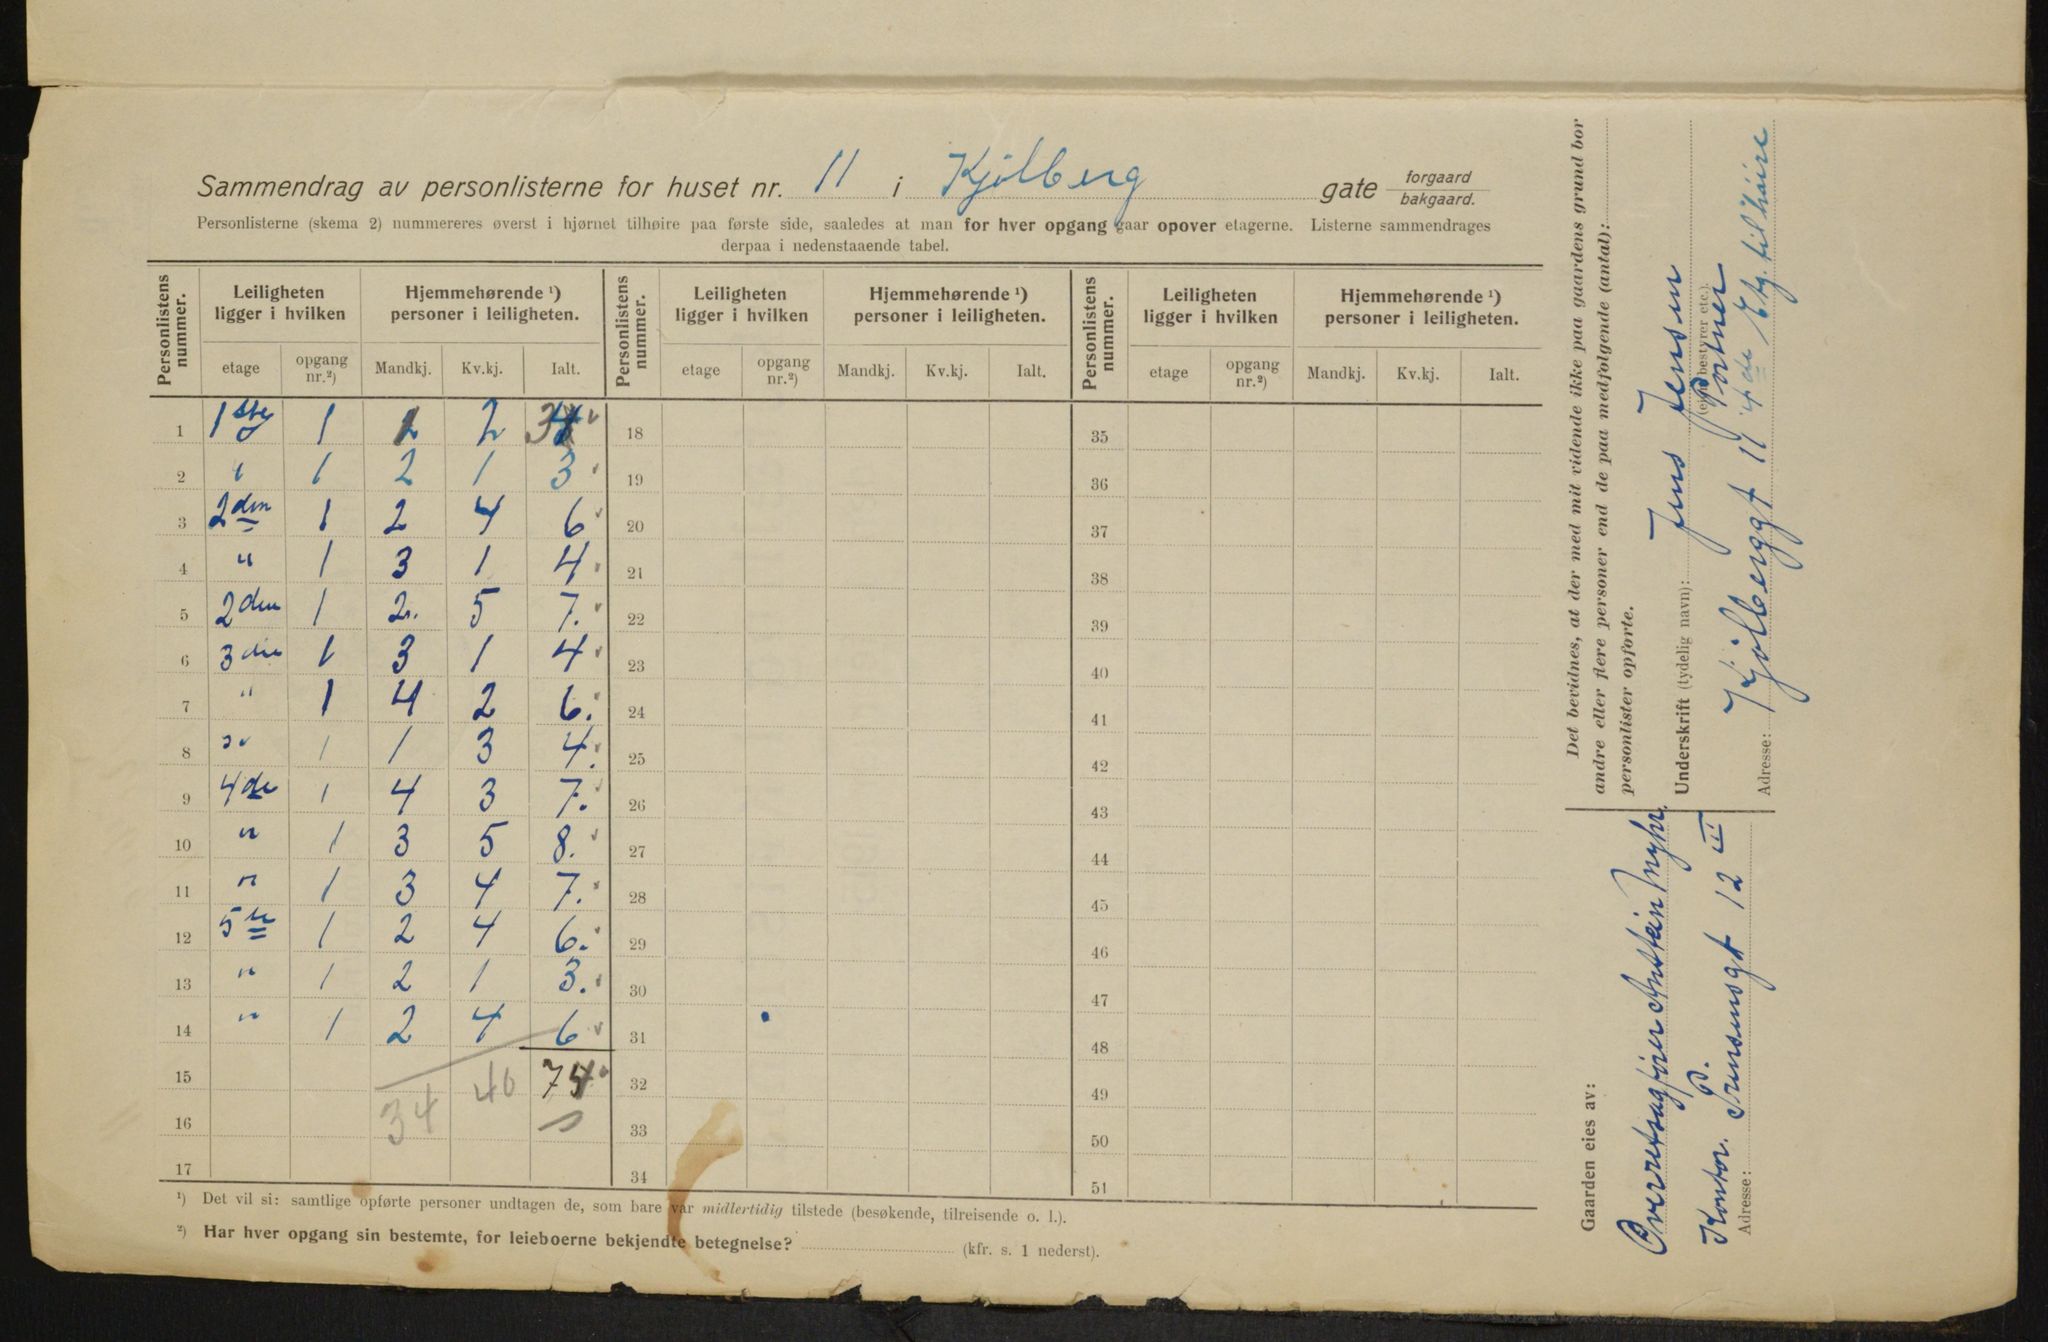 Sammendrag av personlisterne for huset nr. 11 i Kjølberg gate forgaard bakgaard.
Personlisterne (skema 2) nummereres øverst i hjørnet tilhøire paa første side, saaledes at man for hver opgang gaar opover etagerne. Listerne sammendrages
derpaa i nedenstaaende tabel.
Personlistens nummer. Leiligheten ligger i hvilken Hjemmehørende ¹) personer i leiligheten. Personlistens nummer. Leiligheten ligger i hvilken Hjemmehørende ¹) personer i leiligheten. Personlistens nummer. Leiligheten ligger i hvilken Hjemmehørende ¹) personer i leiligheten.
etage opgang nr.²) Mandkj. Kv.kj. Ialt. etage opgang nr.²) Mandkj. Kv.kj. Ialt. etage opgang nr.²) Mandkj. Kv.kj. Ialt.
1 1 1 2 3 18 35
2 " 1 2 1 3 19 36
3 2den 1 2 4 6 20 37
4 " 1 3 1 4 21 38
5 2den 1 2. 5 7. 22 39
6 3die 1 3 1 4 23 40
7 " 1 4 2 6. 24 41
8 " 1 1 3 4. 25 42
9 4de 1 4 3 7. 26 43
10 " 1 3 5 8. 27 44
11 " 1 3 4 7. 28 45
12 5te 1 2 4 6. 29 46
13 " 1 2 1 3. 30 47
14 " 1 2 4 6 31 48
15 34 40 74 32 49
16 33 50
17 34 51
¹) Det vil si: samtlige opførte personer undtagen de, som bare var midlertidig tilstede (besøkende, tilreisende o. l.).
²) Har hver opgang sin bestemte, for leieboerne bekjendte betegnelse? (kfr. s. 1 nederst).
Det bevidnes, at der med mit vidende ikke paa gaardens grund bor
andre eller flere personer end de paa medfølgende (antal):
personlister opførte.
Underskrift (tydelig navn): Jens Jensen
(eier, bestyrer etc.). Portner
Adresse: Kjølberggt 11 4de Etg. tilhøire
Gaarden eies av:
Overretsagfører Anstein Myhr.
Kontor. P.
Adresse: Prinsensgt 12 III